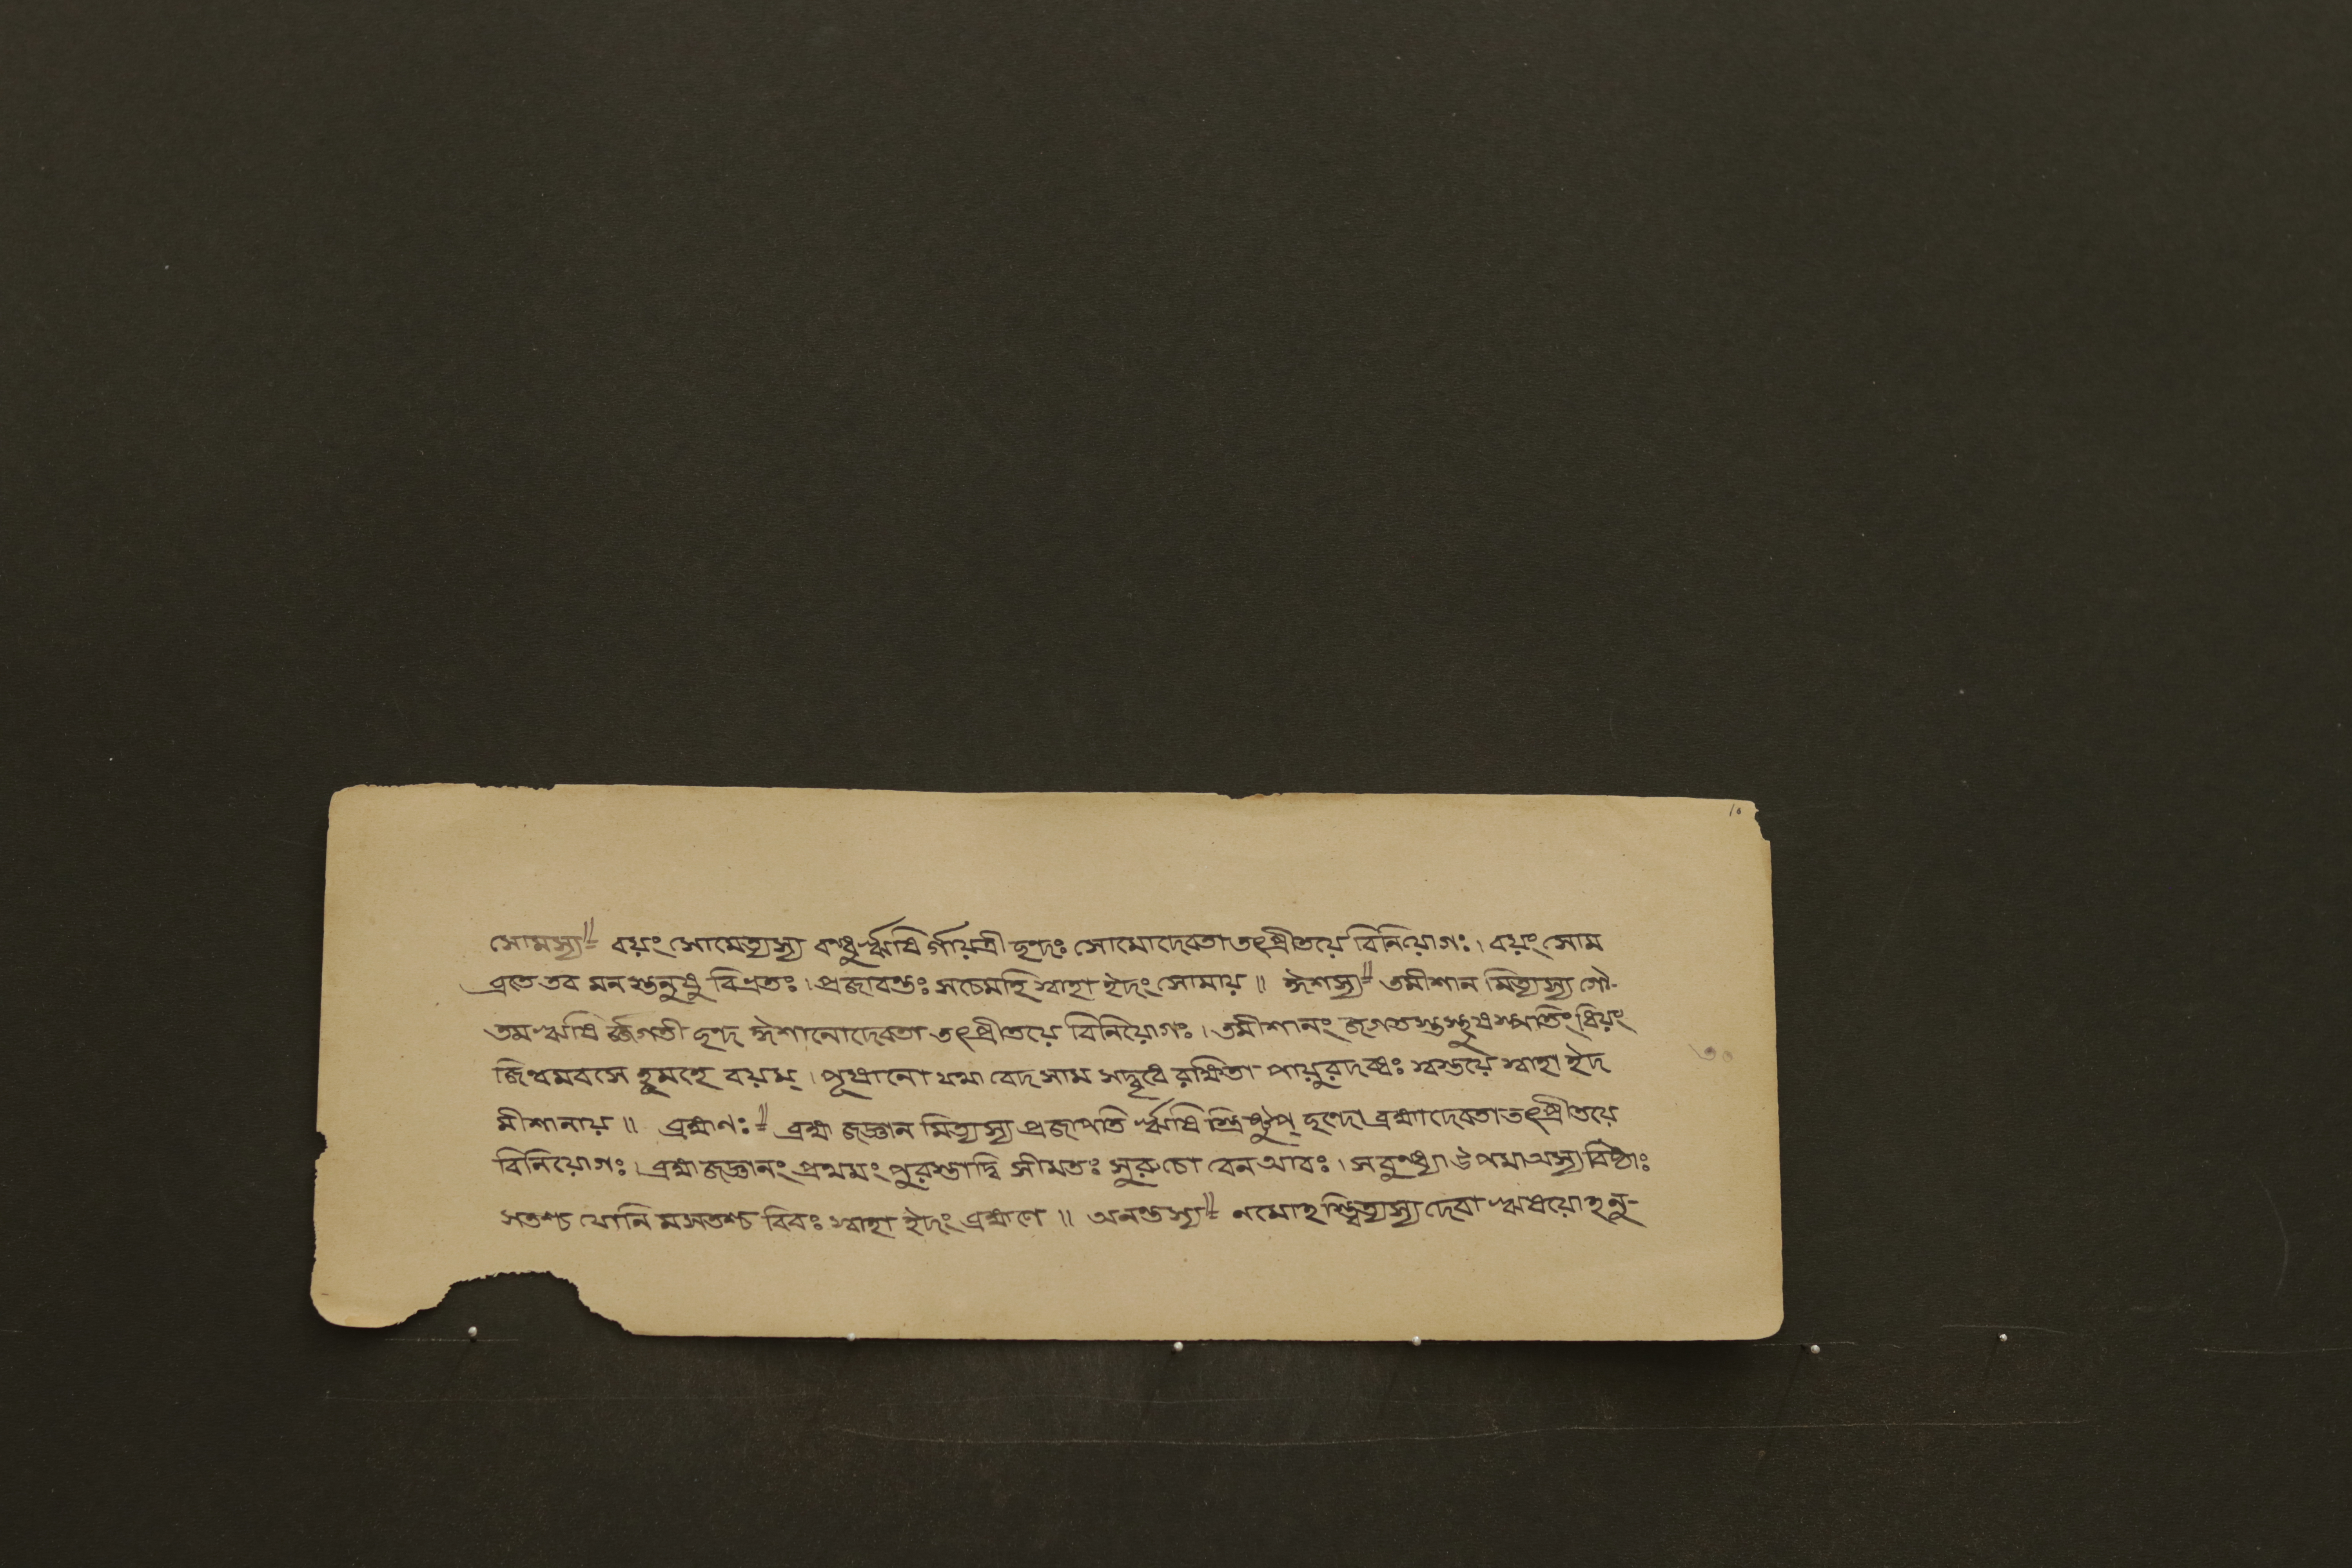 ১০
সোমস্য॥= বয়ং সোমেত্যস্য বন্ধুর্ঋষি র্গায়ত্রী ছন্দঃ সোমোদেবতা তৎপ্রীতয়ে বিনিয়োগঃ। বয়ং সোম
ব্রতে তব মনস্তনুষু বিভ্রতঃ। প্রজাবন্তঃ সচেমহি স্বাহা ইদং সোমায়॥ ঈশস্য॥= তমীশান মিত্যস্য গৌ-
তম ঋষি র্জ্জগতী ছন্দ ঈশানোদেবতা তৎপ্রীতয়ে বিনিয়োগঃ। তমীশানং জগতস্তস্থুষস্পতিং ধিয়ং
জিন্বমবসে হূমহে বয়ম্। পূষানো যথা বেদ সাম সদ্বৃধে রক্ষিতা পায়ুরদব্ধঃ স্বস্তয়ে স্বাহা ইদ
মীশানায়॥ ব্রহ্মণঃ॥= ব্রহ্ম জজ্ঞান মিত্যস্য প্রজাপতি র্ঋষি স্ত্রিষ্টুপ্ ছন্দো ব্রহ্মাদেবতা তৎপ্রীতয়ে
বিনিয়োগঃ। ব্রহ্মজজ্ঞানং প্রথমং পুরস্তাদ্বি সীমতঃ সুরুচো বেন আবঃ। সবুধ্ন্যা উপমা অস্য বিষ্ঠাঃ
সতশ্চ যোনি মসতশ্চ বিবঃ স্বাহা ইদং ব্রহ্মণে॥ অনন্তস্য॥= নমোহস্ত্বিত্যস্য দেবা ঋষয়োহনু-